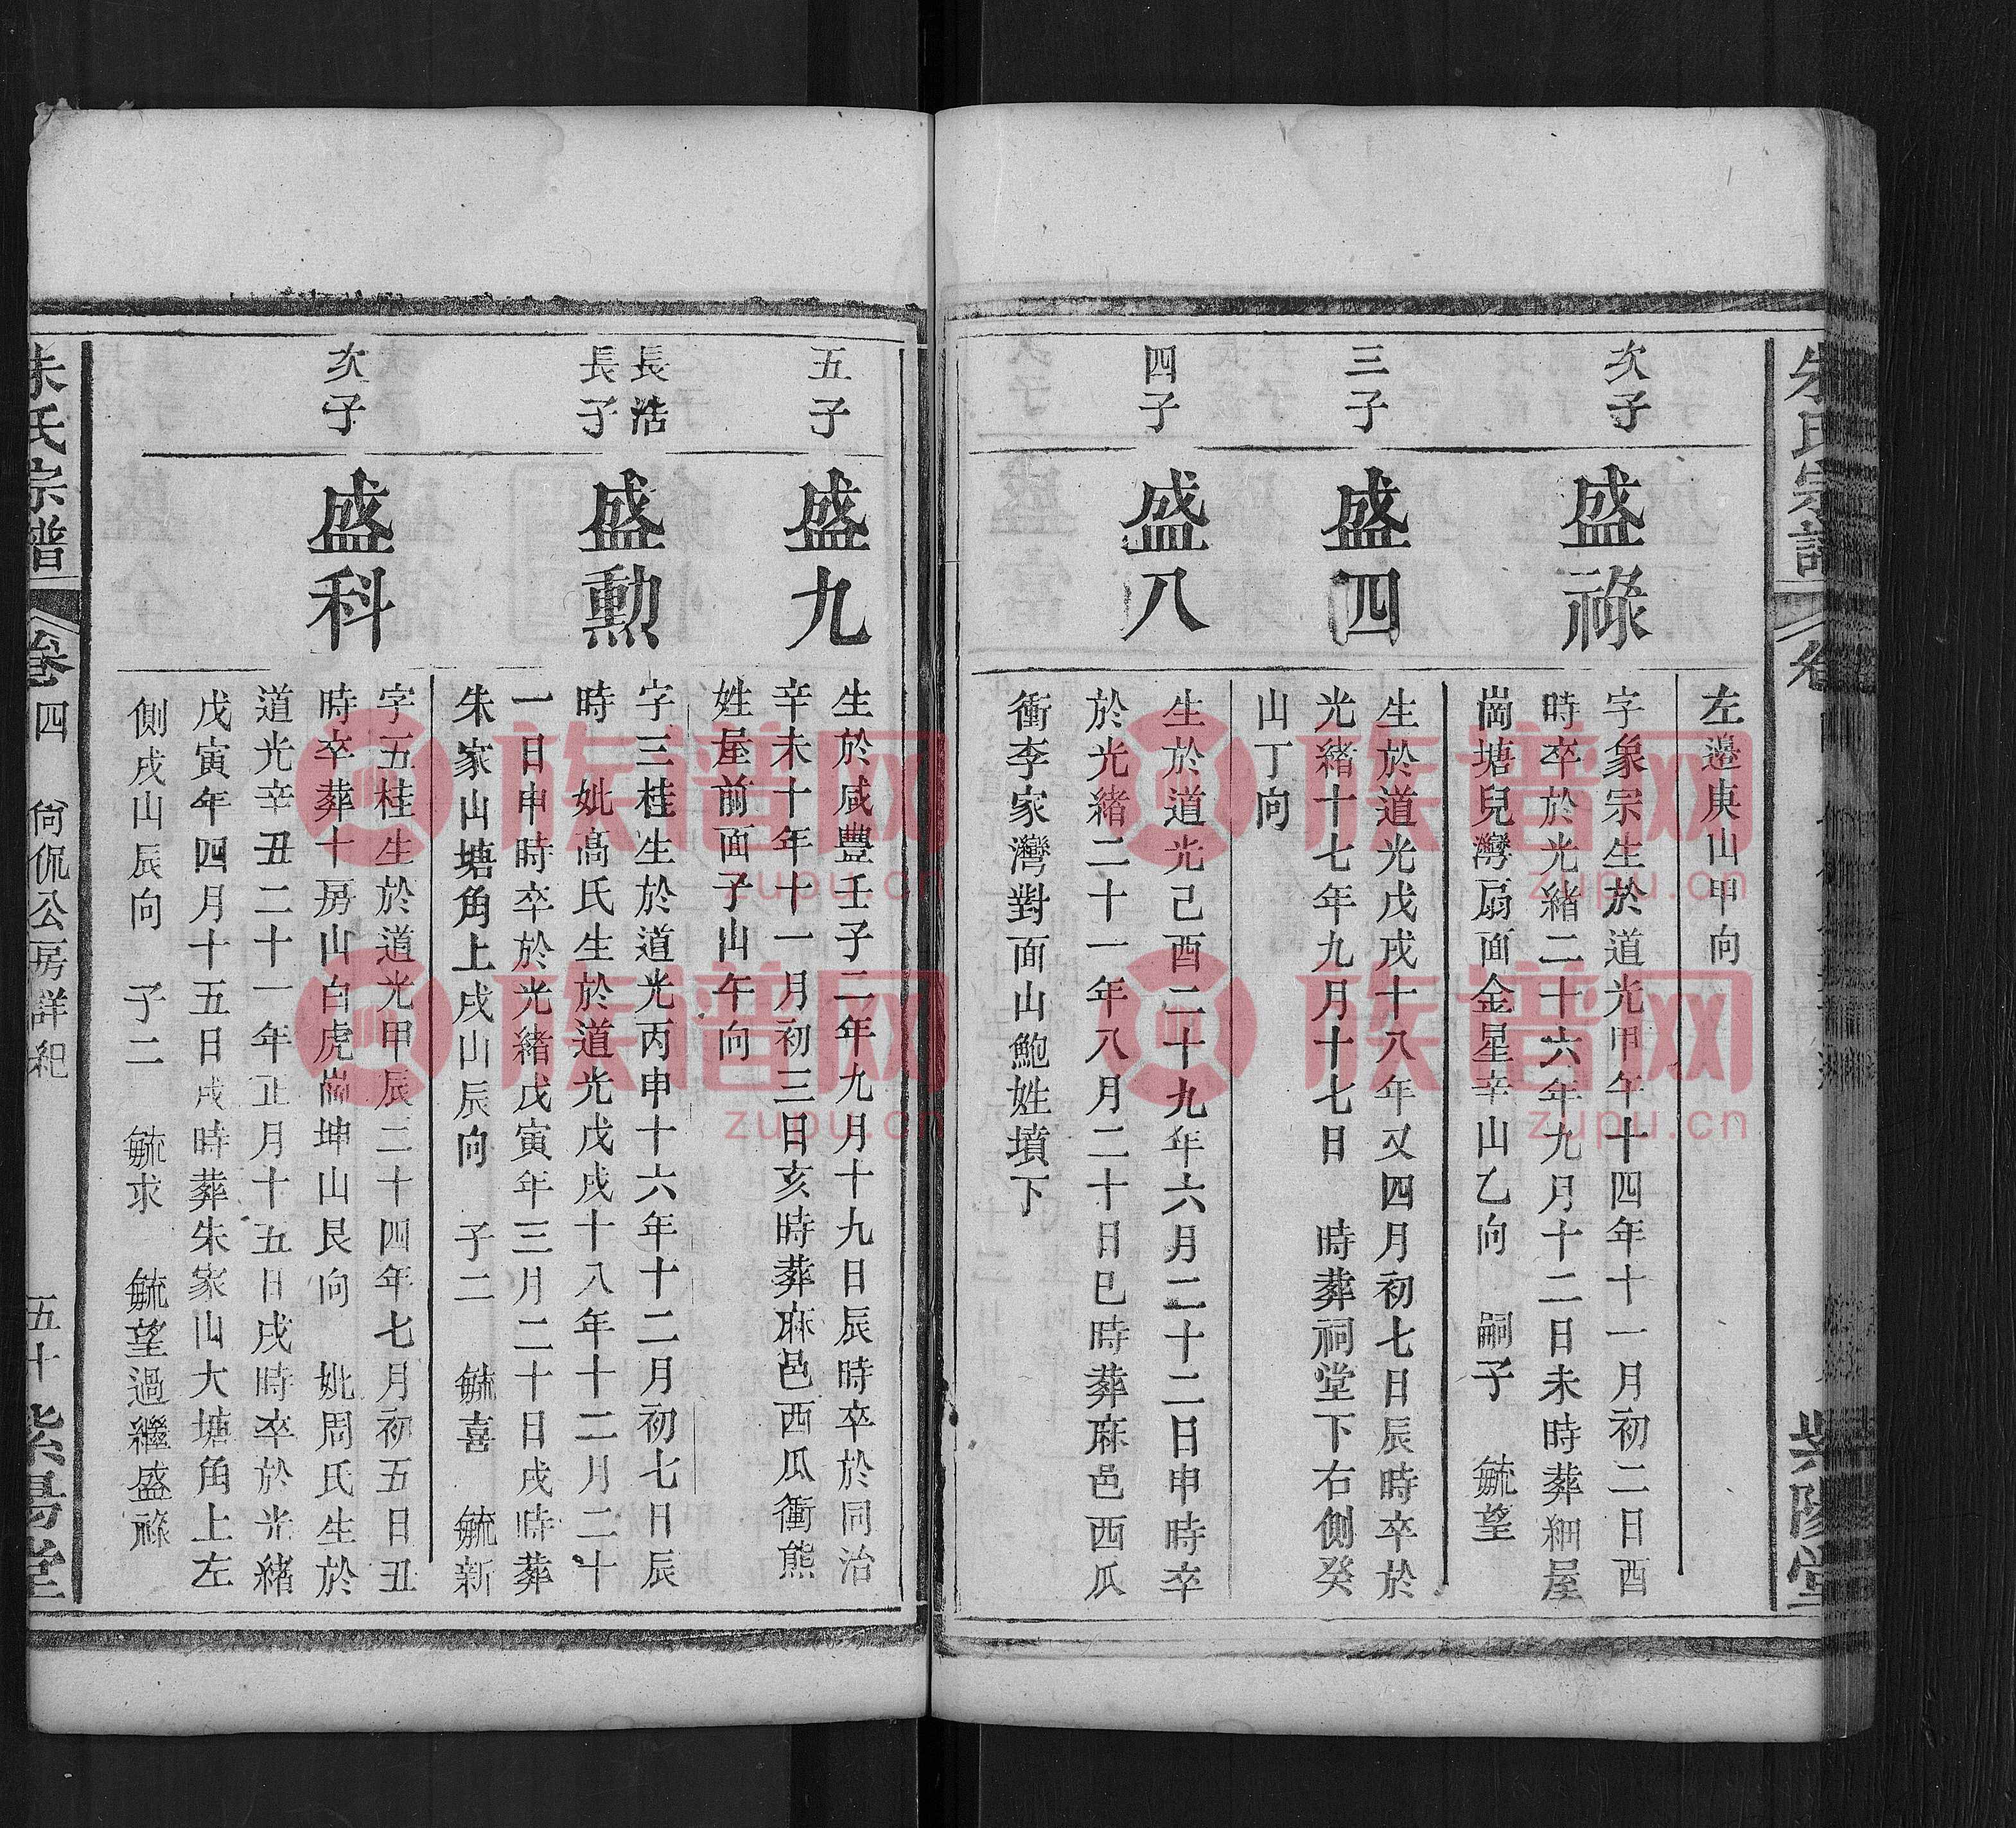 朱氏宗譜
紫陽堂
左邊庚山甲向
次子
盛祿
字象宗生於道光甲午十四年十一月初二日酉
時卒於光緒二十六年九月十二日未時葬細屋
崗塘兒灣扇面金星辛山乙向 嗣子 毓望
三子
盛四
生於道光戊戌十八年又四月初七日辰時卒於
光緒十七年九月十七日 時葬祠堂下右側癸
山丁向
四子
盛八
生於道光己酉二十九年六月二十二日申時卒
於光緒二十一年八月二十日巳時葬麻邑西瓜
衝李家灣對面山鮑姓墳下
五子
盛九
生於咸豐壬子二年九月十九日辰時卒於同治
辛未十年十一月初三日亥時葬麻邑西瓜衝熊
姓屋前面子山午向
長浩
長子
盛勳
字三桂生於道光丙申十六年十二月初七日辰
時 妣高氏生於道光戊戌十八年十二月二十
一日申時卒於光緒戊寅年三月二十日戌時葬
朱家山塘角上戌山辰向 子二 毓喜 毓新
次子
盛科
字五桂生於道光甲辰二十四年七月初五日丑
時卒葬十房山白虎崗坤山艮向 妣周氏生於
道光辛丑二十一年正月十五日戌時卒於光緒
戊寅年四月十五日戌時葬朱家山大塘角上左
側戌山辰向 子二 毓求 毓望過繼盛祿
朱氏宗譜 卷四 尙侃公房詳紀 五十 紫陽堂
族谱网
zupu.cn
族谱网
zupu.cn
族谱网
zupu.cn
族谱网
zupu.cn